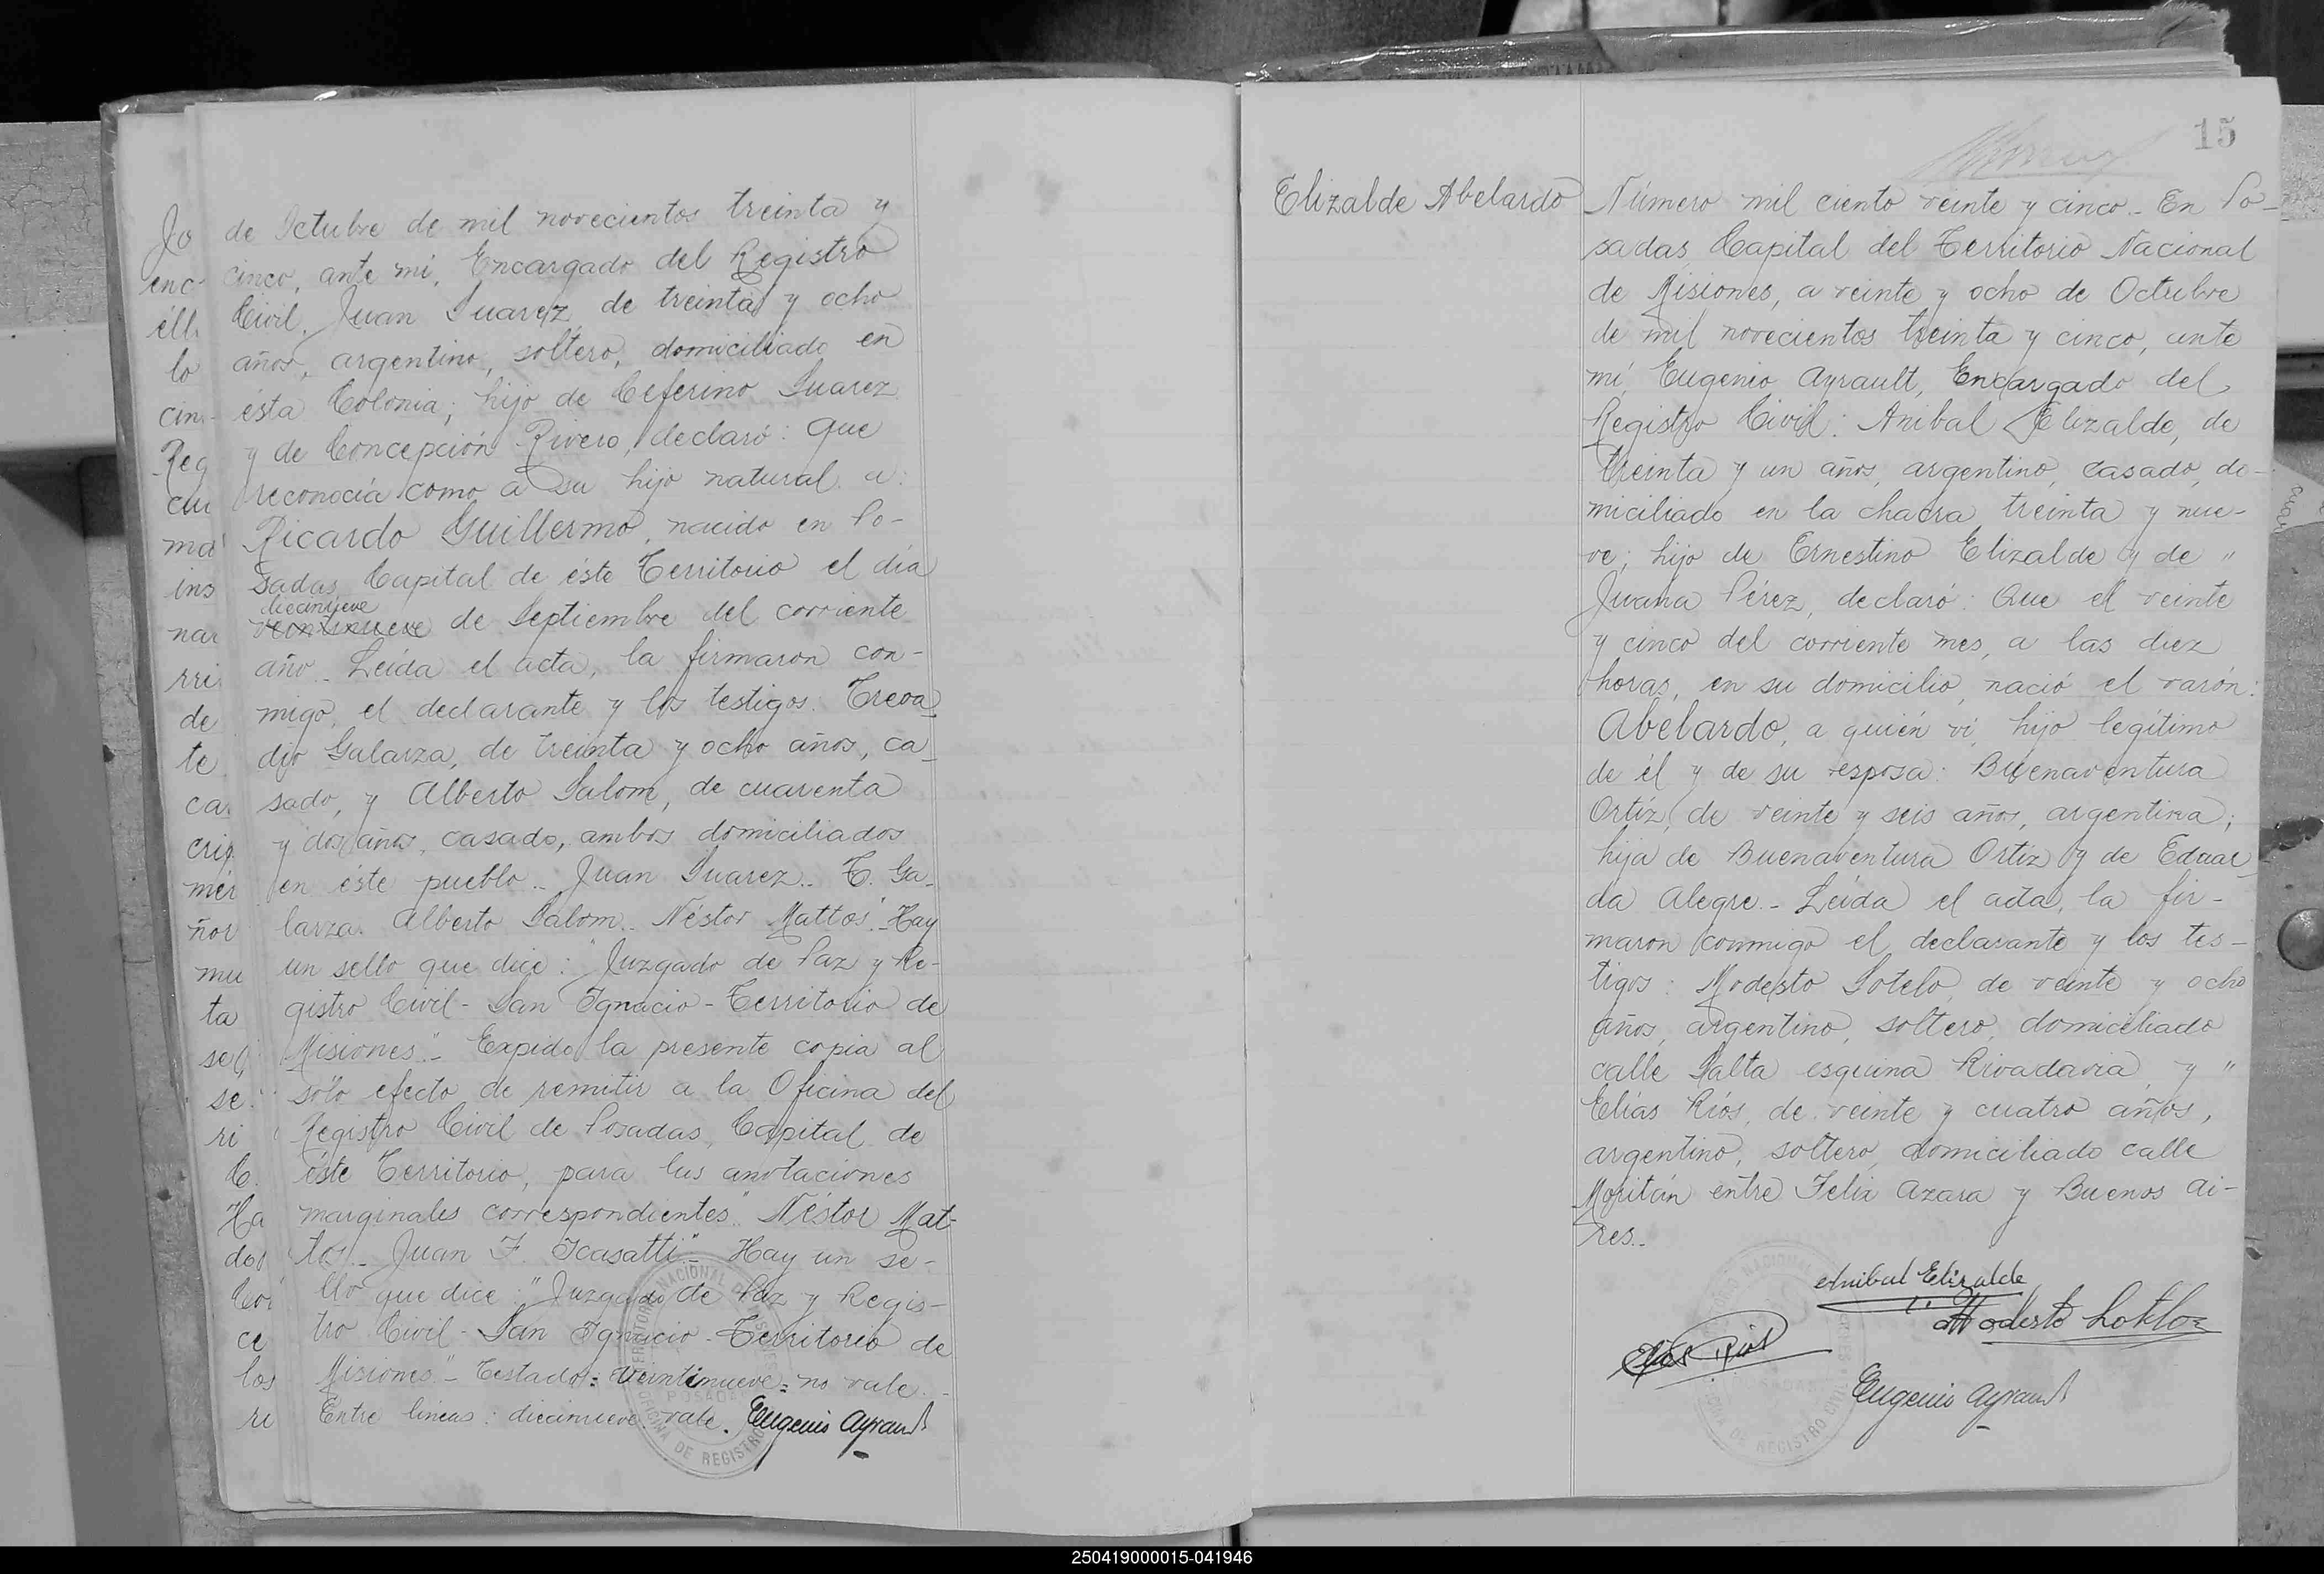 de Octubre de mil novecientos treinta y
cinco, ante mí, Encargado del Registro
Civil, Juan Suarez, de treinta y ocho
años, argentino, soltero, domiciliado en
ésta Colonia; hijo de Ceferino Suarez
y de Concepción Rivero, declaró: Que
reconocía como a su hijo natural a:
Ricardo Guillermo, nacido en Po-
sadas, Capital de éste Territorio el día
diecinueve
veintinueve de Septiembre del corriente
año.- Leída el acta, la firmaron con-
migo, el declarante y los testigos:
dio Galarza, de treinta y ocho años, ca-
sado, y Alberto Salom, de cuarenta
y dos años, casado, ambos domiciliados
en éste pueblo.- Juan Suarez.- T. Ga-
larza. Alberto Salom.- Néstor Mattos".- Hay
un sello que dice: "Juzgado de Paz y Re-
gistro Civil - San Ignacio - Territorio de
Misiones".- Expido la presente copia al
sólo efecto de remitir a la Oficina del
Registro Civil de Posadas, Capital de
éste Territorio, para las anotaciones
marginales correspondientes". Néstor Mat-
tos.- Juan F. Icasatti".- Hay un se-
llo que dice: "Juzgado de Paz y Regis-
tro Civil - San Ignacio - Territorio de
Misiones".- Testado: veintinueve: no vale.-
Entre líneas: diecinueve: vale. Eugenio Ayrault
Jo
enc
éll
lo
cin-
Reg
cui
ma
ins
nar
rri
de
te
ca
crip
mer
ñor
mu
ta
se
ri
C.
Ha
dos
ce
los
re
15
Elizalde Abelardo
Número mil ciento veinte y cinco.- En Po-
sadas, Capital del Territorio Nacional
de Misiones, a veinte y ocho de Octubre
de mil novecientos treinta y cinco, ante
mí, Eugenio Ayrault, Encargado del
Registro Civil: Anibal Elizalde, de
treinta y un años, argentino, casado, do-
miciliado en la chacra treinta y nue-
ve; hijo de Ernestino Elizalde y de "
Juana Pérez, declaró: Que el veinte
y cinco del corriente mes, a las diez
horas, en su domicilio, nació el varón:
Abelardo, a quién ví, hijo legítimo
de él y de su esposa: Buenaventura
Ortíz, de veinte y seis años, argentina;
hija de Buenaventura Ortíz y de Eduar-
da Alegre.- Leída el acta, la fir-
maron conmigo el declarante y los tes-
tigos: Modesto Sotelo, de veinte y ocho
años, argentino, soltero, domiciliado
calle Salta esquina Rivadavia, y "
Elías Ríos, de veinte y cuatro años,
argentino, soltero, domiciliado calle
Moritán entre Felix Azara y Buenos Ai-
res.-
Anibal Elizalde
Modesto Sotelo
Elias Rios
Eugenio Ayrault
250419000015-041946